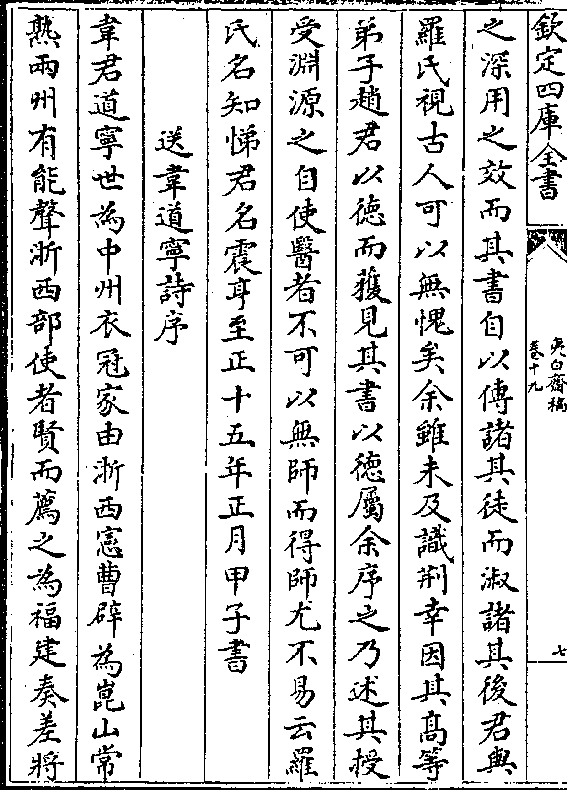 欽定四庫全書
夷白齋稿
卷十九
七
之深用之效而其書自以傳諸其徒而淑諸其後君與
羅氏視古人可以無愧矣余雖未及識荆幸因其髙等
弟子趙君以徳而獲見其書以徳屬余序之乃述其授
受淵源之自使醫者不可以無師而得師尤不易云羅
氏名知悌君名震亨至正十五年正月甲子書
送韋道寧詩序
韋君道寧世為中州衣冠家由浙西憲曹辟為崑山常
熟兩州有能聲浙西部使者賢而薦之為福建奏差將